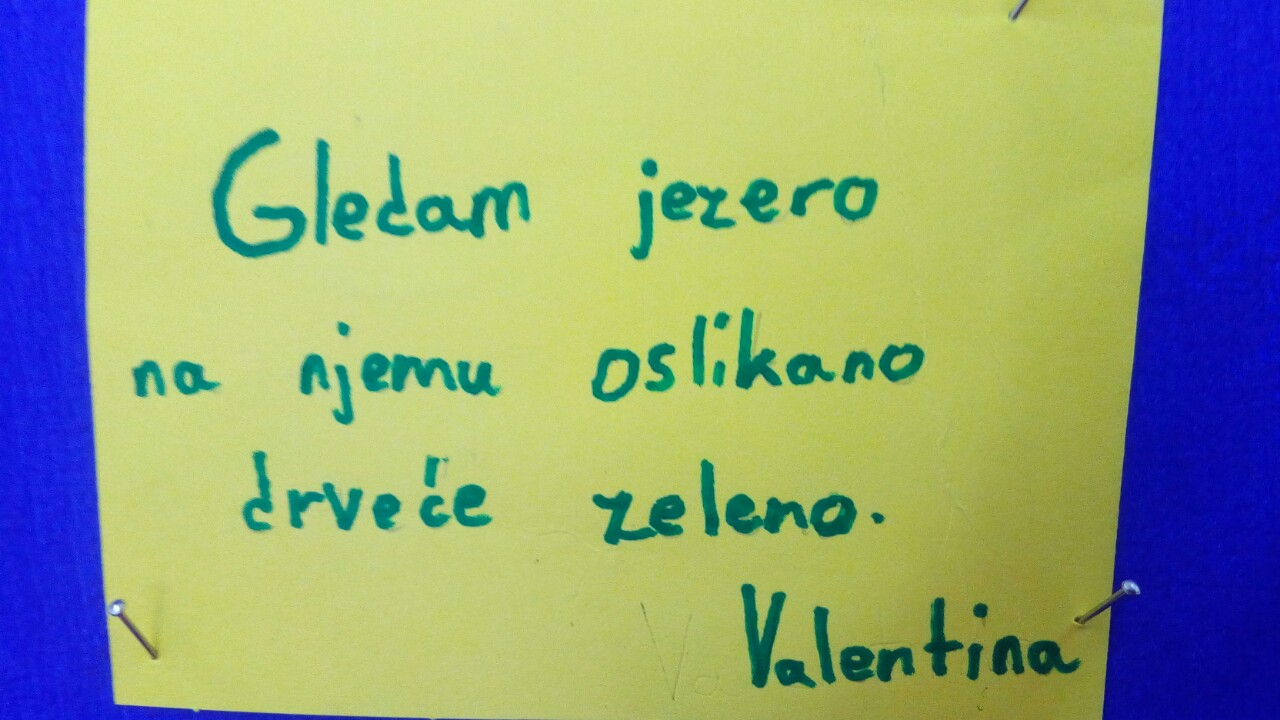 Gledam jezero
na njemu oslikano
drveće zeleno.
Valentina